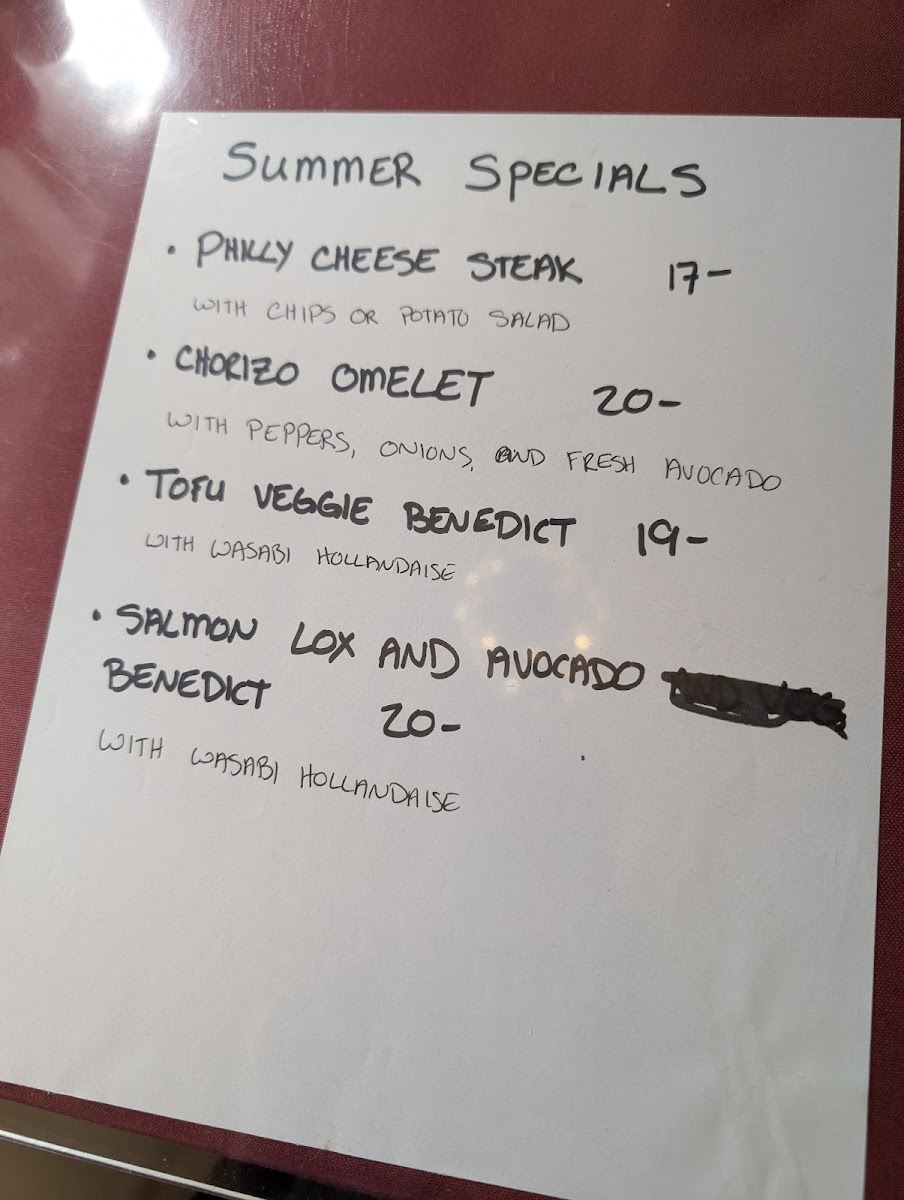 SUMMER SPECIALS
• PHILLY CHEESE STEAK 17-
WITH CHIPS OR POTATO SALAD
• CHORIZO OMELET 20-
WITH PEPPERS, ONIONS, AND FRESH AVOCADO
• TOFU VEGGIE BENEDICT 19-
WITH WASABI HOLLANDAISE
• SALMON LOX AND AVOCADO
BENEDICT 20-
WITH WASABI HOLLANDAISE